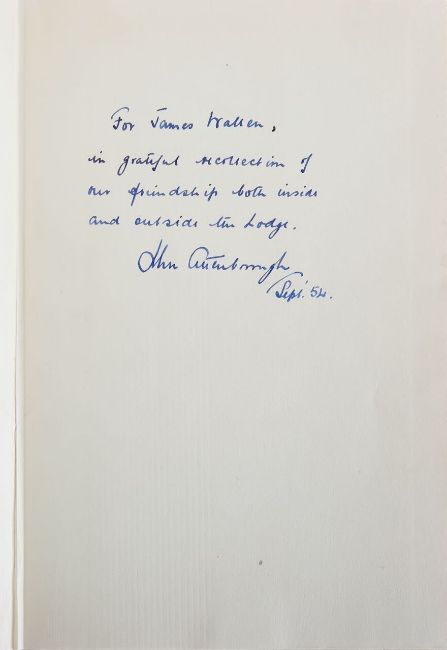 For James Wallen,
in grateful recollection of
our friendship both inside
and outside the Lodge.
John Attenborough
Sept. '54.